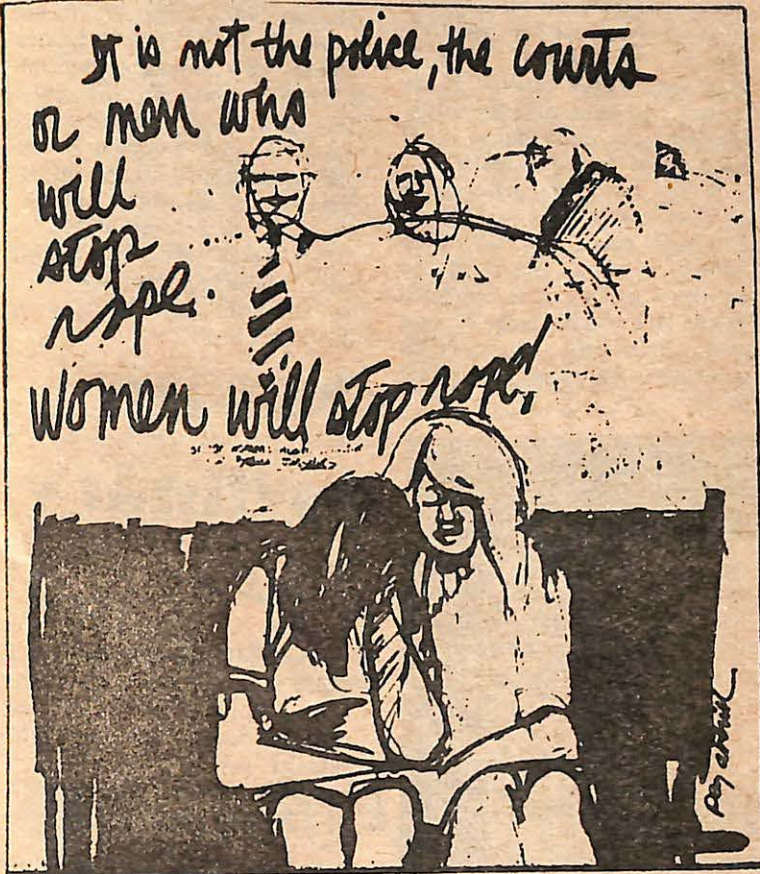 It is not the police, the courts
or men who
will
stop
rape.
Women will stop rape.